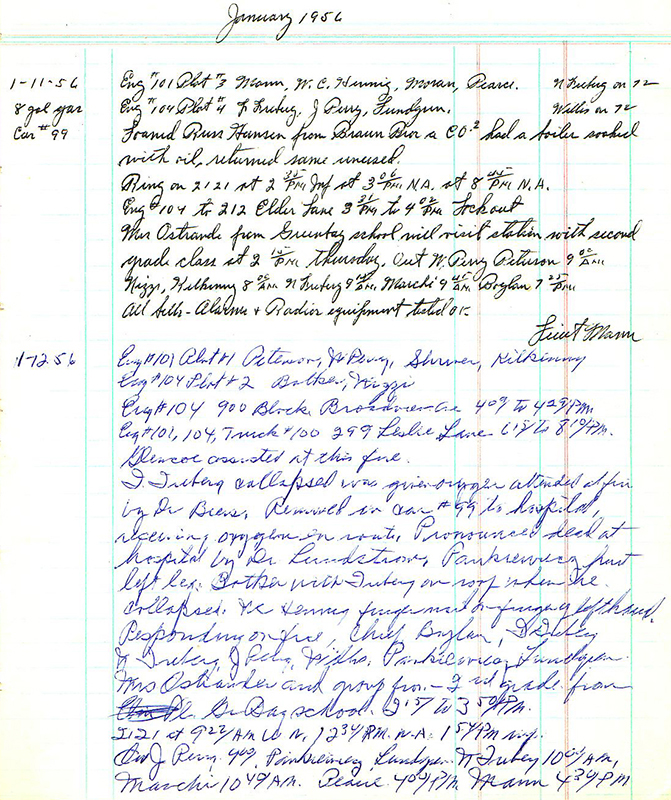 January 1956
1-11-56 Eng #101 Plat #3 Mann, W. C. Hennig, Moran, Pearce. N Freberg on 72
8 gal gas Eng #104 Plat #4 J Perry, Lundgren. on 72
Car #99 Loaned Russ Hansen from Braun Bros a CO.2 had a boiler soaked
with oil, returned same unused.
Ring on 2121 at 2 35 PM at 3 PM, N.A. at 8 45 PM N.A.
Eng #104 to 212 Elder Lane 3 31 PM to 4 02 PM Lockout
Mrs Ostrande from Greenbay school will visit station with second
grade class at 2 15 PM thursday. Out W. Perry Peterson 9 00 A.M.
Kilkenny 8 AM N Freberg 9 AM, Marchi 9 AM Boylan 7 25 PM
All bells - Alarms + Radios equipment tested OK
Lieut Mann
1-12-56 Eng #101 Plat #1 Peterson, W Perry, Kilkenny
Eng #104 Plat #2 Bother,
Eng #104 900 Block Broadview Ave 409 to 429 PM
Eng #101, 104, Truck #100 299 Leslie Lane 615 to 810 PM.
Glencoe assisted at this fire.
Freberg collapsed was given oxygen attended at fire
by Dr Removed in car #99 to hospital,
receiving oxygen en route, Pronounced dead at
hospital by Dr Lundstrom, Pankiewicz hurt
left leg. Bother with Freberg on roof when he
collapsed. finger left hand.
Responding on fire, Chief Boylan,
N Freberg, J Perry, Pankiewicz, Lundgren.
Mrs Ostrander and group from 2nd grade from
Gr Bay school. 215 to 350 PM.
2121 at 922 AM 1234 P.M. N.A. 154 PM
Out J Perry 909, Pankiewicz, Lundgren N Freberg 1004 AM,
Marchi 1049 AM. Pearce 404 PM Mann 434 PM